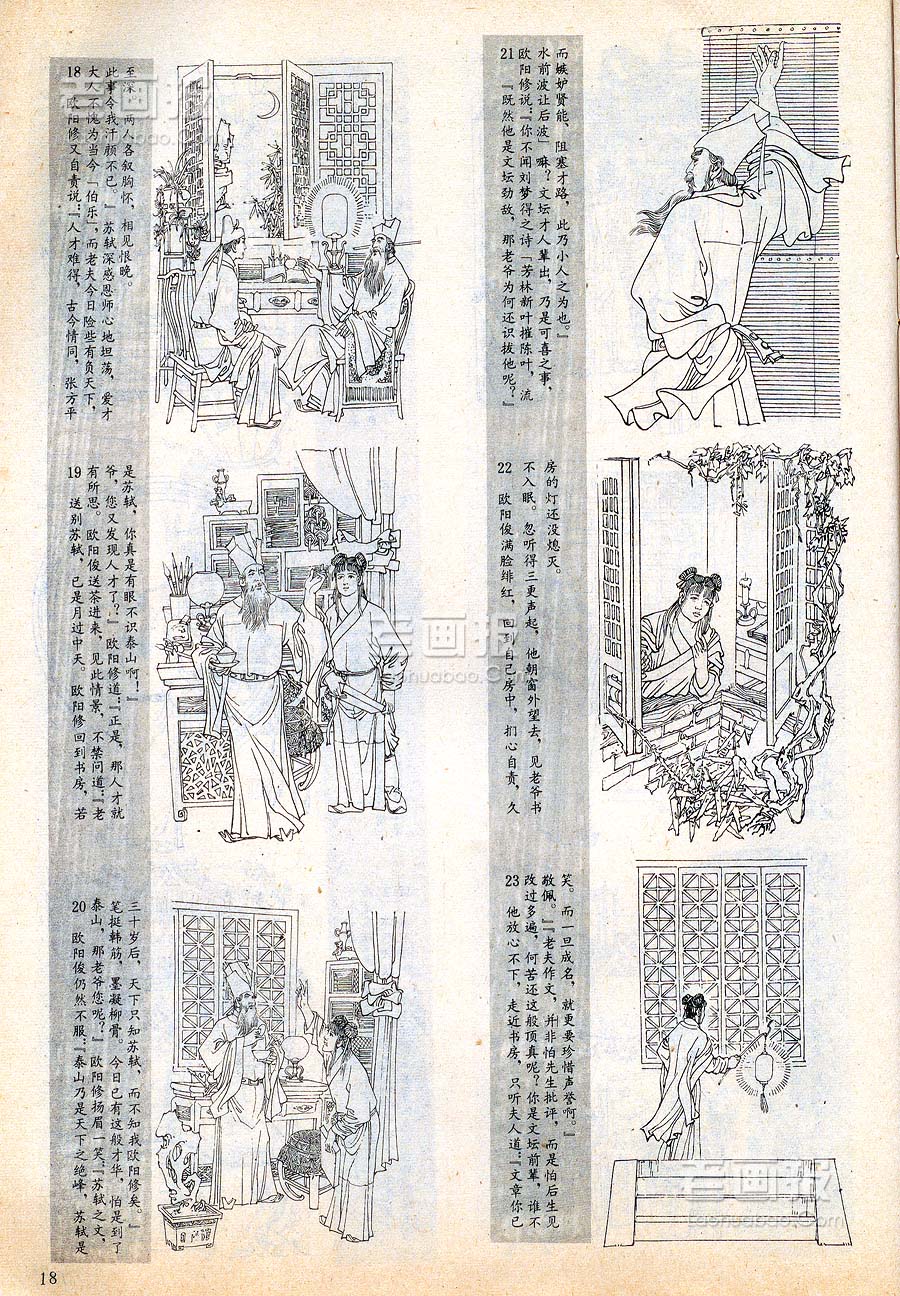 18 欧阳修又自责说:『人才难得,古今情同,张方平
大人不愧为当今「伯乐」,而老夫今日险些有负天下,
此事令我汗颜不已。』苏轼深感恩师心地坦荡,爱才
至深。两人各叙胸怀,相见恨晚。
19 送别苏轼,已是月过中天。欧阳修回到书房,若
有所思。欧阳俊送茶进来,见此情景,不禁问道:『老
爷,您又发现人才了?』欧阳修道:『正是,那人才就
是苏轼,你真是有眼不识泰山啊!』
20 欧阳俊仍然不服:『泰山乃是天下之绝峰,苏轼是
泰山,那老爷您呢?』欧阳修扬眉一笑:『苏轼之文,
笔挺韩筋,墨凝柳骨。今日已有这般才华,怕是到了
三十岁后,天下只知苏轼,而不知我欧阳修矣。』
21 『既然他是文坛劲敌,那老爷为何还识拔他呢?』
欧阳修说:『你不闻刘梦得之诗「芳林新叶摧陈叶,流
水前波让后波」嘛?文坛才人辈出,乃是可喜之事,
而嫉妒贤能、阻塞才路,此乃小人之为也。』
22 欧阳俊满脸绯红,回到自己房中,扪心自责,久
不入眠。忽听得三更声起,他朝窗外望去,见老爷书
房的灯还没熄灭。
23 他放心不下,走近书房,只听夫人道:『文章你已
改过多遍,何苦还这般顶真呢?你是文坛前辈,谁不
敬佩。』『老夫作文,并非怕先生批评,而是怕后生见
笑。而一旦成名,就更要珍惜声誉啊。』
18
老画报
Laohuabao.Com
老画报
Laohuabao.Com
老画报
Laohuabao.Com